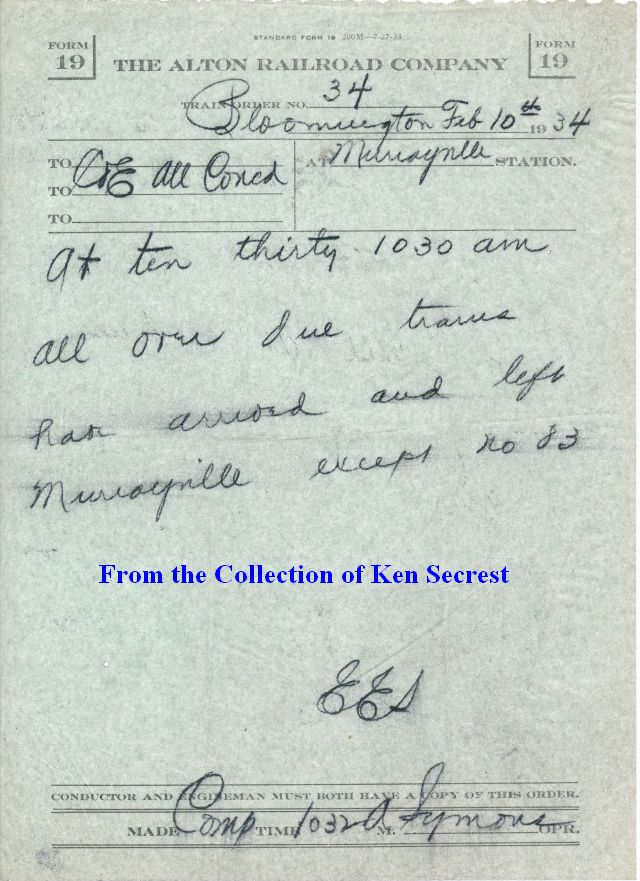 STANDARD FORM 19 200M—7-27-33
FORM 19 THE ALTON RAILROAD COMPANY FORM 19
TRAIN ORDER NO. 34
Bloomington Feb 10th 1934
TO C&E All Concd AT Murrayville STATION.
TO
TO
At ten thirty 1030 am
all over due trains
have arrived and left
Murrayville except no 83
From the Collection of Ken Secrest
EES
CONDUCTOR AND ENGINEMAN MUST BOTH HAVE A COPY OF THIS ORDER.
MADE Comp TIME 1032 A M. Symons OPR.